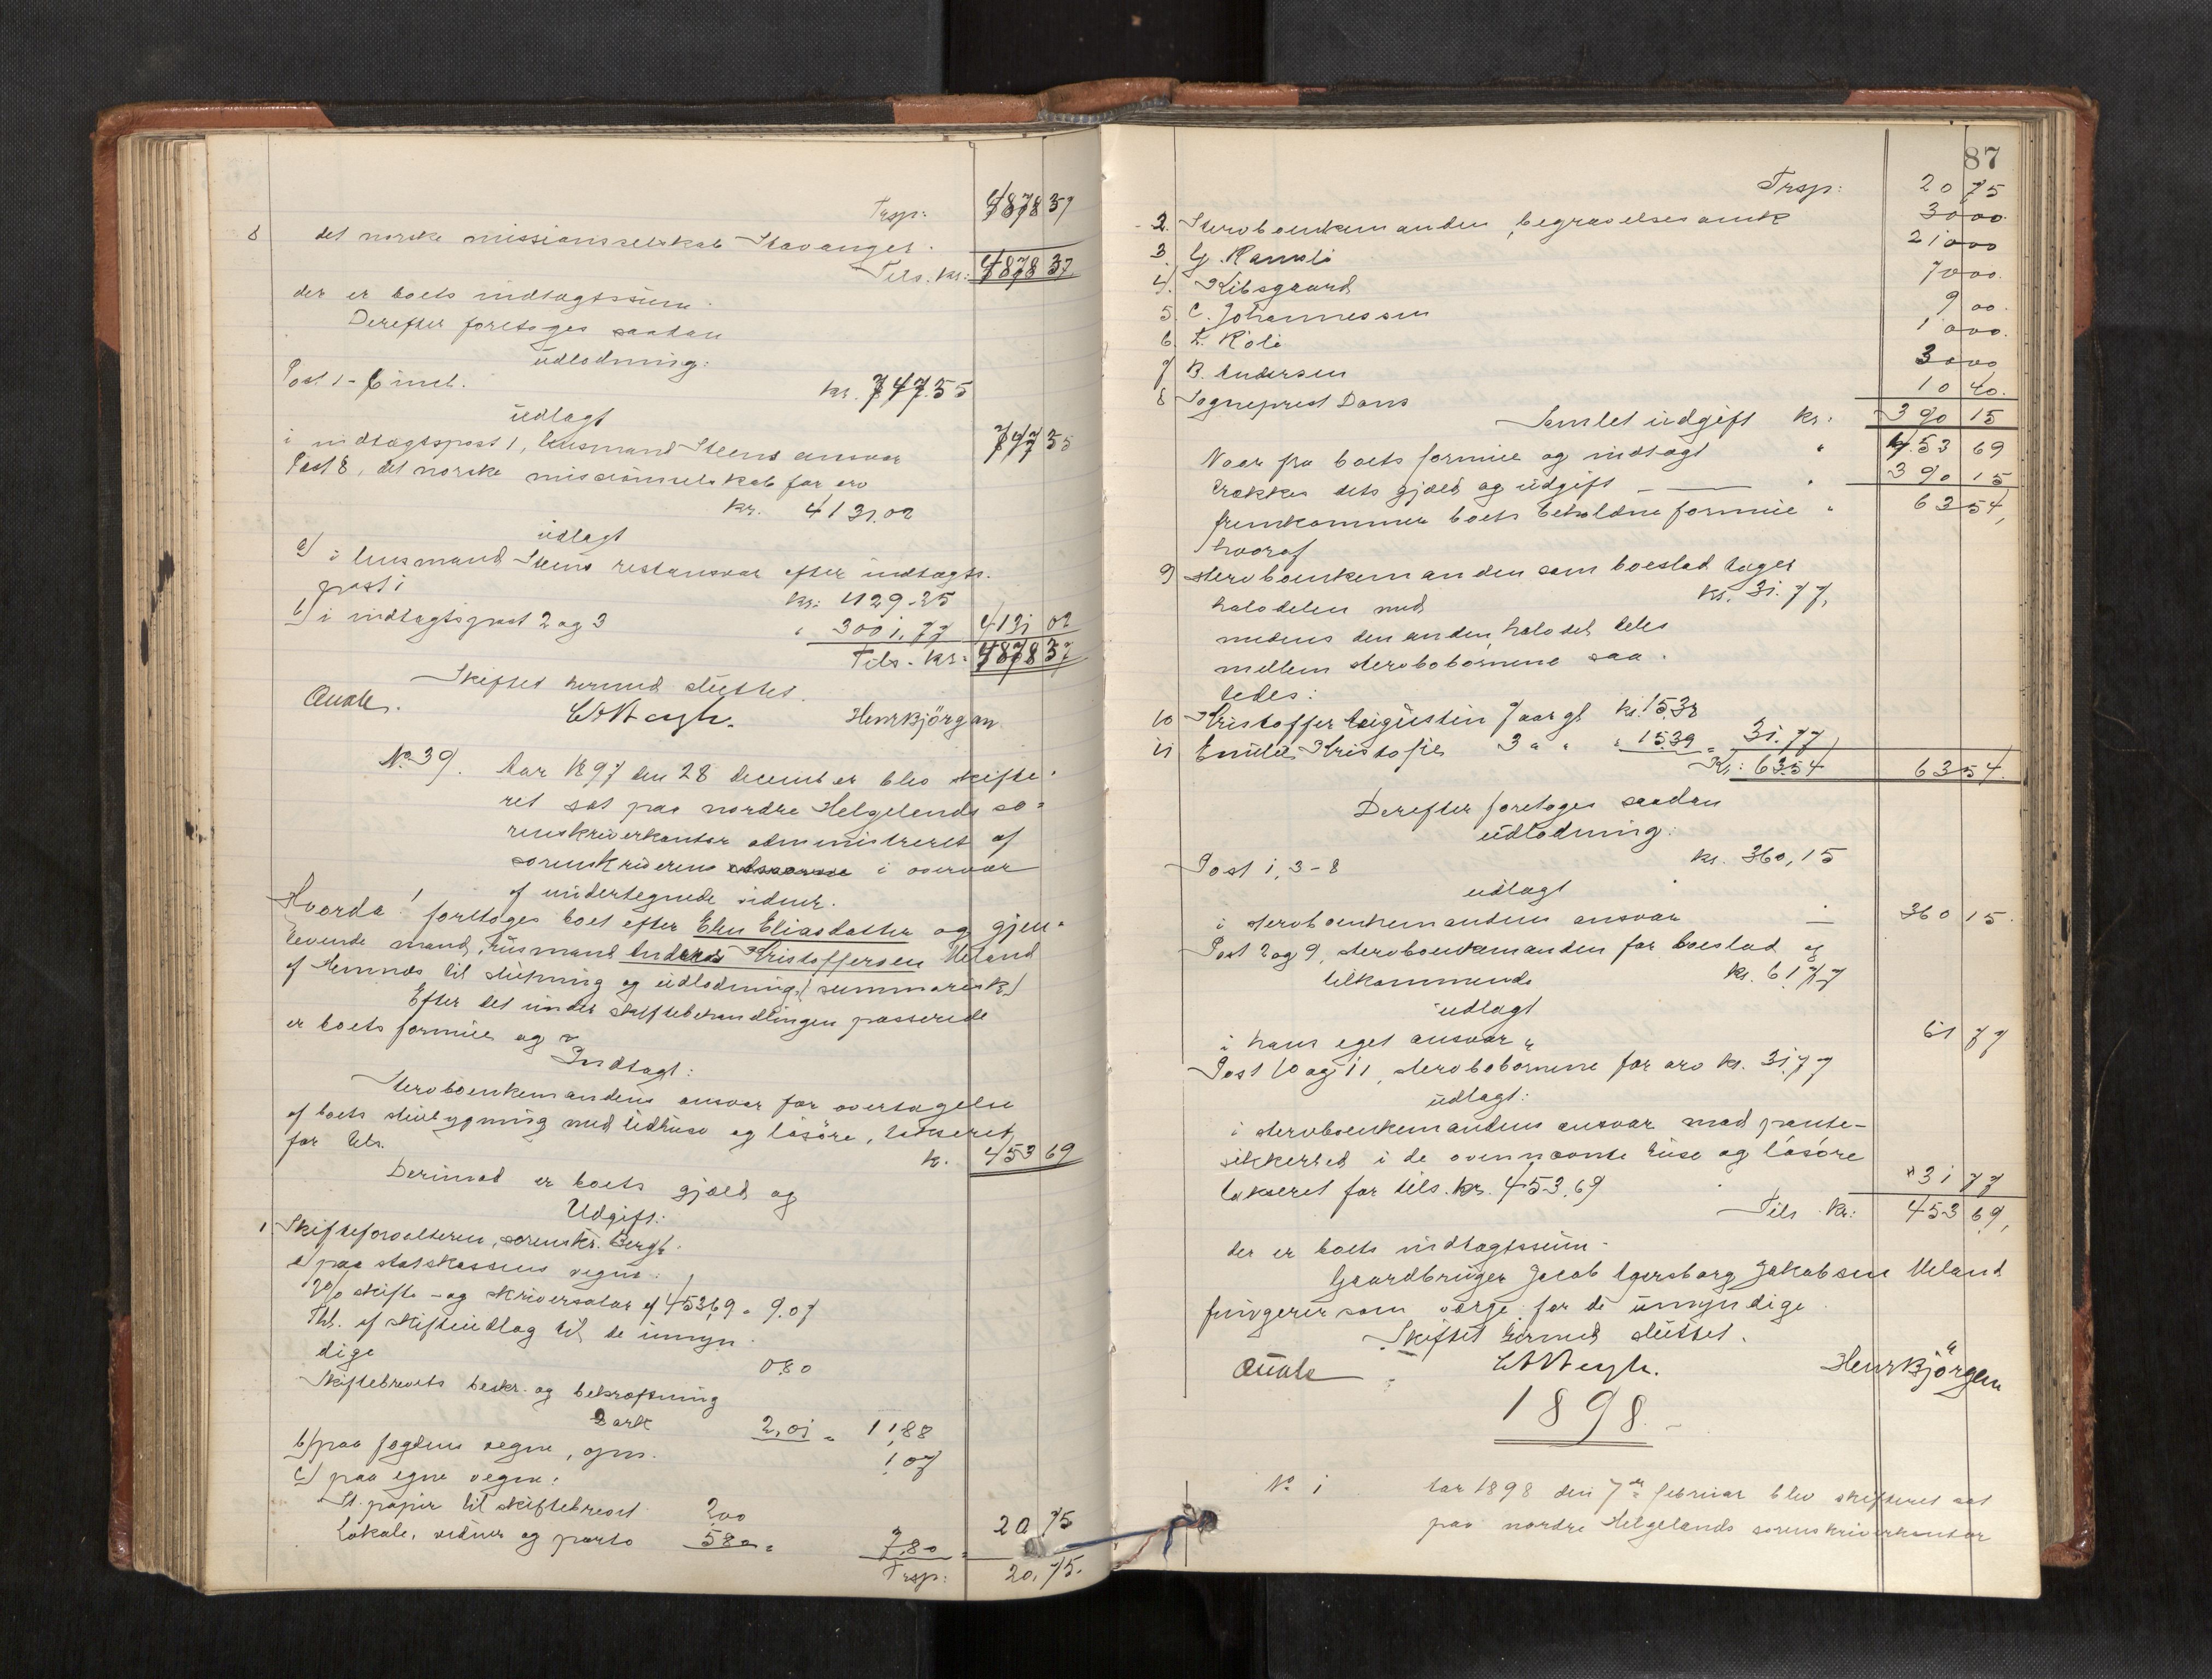 Trsp: 4878 37
8 det norske missionsselskab Stavanger.
Tils. kr: 4878 37
der er boets indtægtssum.
Derefter foretoges saadan
udlodning:
Post 1-7 incl. kr. 747.35
udlagt
i indtægtspost 1, lensmand Steens ansvar 747 35
Post 8, det norske missionsselskab for arv
kr. 4131.02
udlagt
a) i lensmand Steens restansvar efter indtægts-
post 1 kr: 1129.25
b) i indtægtspost 2 og 3 " 3001,77 4131 02
Tils. kr: 4878 37
Skiftet hermed sluttet.
Qvale. Henr Bjørgan
No 39. Aar 1897 den 28 december blev skifte-
ret sat paa nordre Helgelands so-
renskriverkontor administreret af
sorenskriveren i overvær
af undertegnede vidner.
Hvorda! foretoges boet efter Elen Eliasdatter og gjen-
levende mand, husmand Anders Kristoffersen Uland
af Hemnæs til slutning og udlodning (summarisk)
Efter det under skiftebehandlingen passerede
er boets formue og
Indtægt:
Stervboenkemandens ansvar for overtagelse
af boets stuebygning med udhuse og løsøre, takseret
for tils. kr. 453 69
Derimod er boets gjæld og
Udgift:
1 Skifteforvalteren, sorenskr. Bergh.
a) paa statskassens vegne:
2% skifte- og skriversalær af 453,69 " 9.07
Thl. af skifteudlæg til de umyn-
dige 0.80
Skiftebrevets beskr. og bekræftning
3 ark 2,01 " 11,88
b) paa fogdens vegne, gm. 1,07
c) paa egne vegne:
St. papir til skiftebrevet 2,00
Lokale, vidner og porto 5.80 " 7,80 " 20 75
Trsp: 20,75.
87
Trsp: 20 75
2. Stervboenkemanden, begravelsesomk 30 00.
3. G. Ramsli 210 00
4. Kibsgaard 70 00.
5. C. Johannessen 9 00.
6. L. Røli 10 00.
7 B. Andersen 30 00
8 Sogneprest Dons 10 40.
Samlet udgift kr. 390 15
Naar fra boets formue og indtægt " 453 69
trækkes dets gjæld og udgift " 390 15
fremkommer boets beholdne formue " 63 54,
hvoraf
9) stervboenkemanden som boeslod tager
halvdelen med kr. 31.77,
medens den anden halvdel deles
mellem stervbobørnene saa-
ledes:
10 Kristoffer Augustin 7 aar gl kr. 15.38
11 Emilie Kristofie 3 " " " 15.39 " 31.77
Kr: 63.54 63 54.
Derefter foretoges saadan
udlodning:
Post 1, 3-8 kr. 360,15
udlagt
i stervboenkemandens ansvar 360 15.
Post 2 og 9, stervboenkemanden for boeslod og
tilkommende kr. 61.77
udlagt
i hans eget ansvar 61 77
Post 10 og 11, stervbobørnene for arv kr. 31,77
udlagt:
i stervboenkemandens ansvar mod pante-
sikkerhed i de ovennævnte huse og løsøre
takseret for tils. kr. 453,69 " 31 77
Tils kr: 453 69,
der er boets indtægtssum.
Gaardbruger Jacob Agersborg Jakobsen Uland
fungerer som værge for de umyndige
Skiftet hermed sluttet.
Qvale Henr Bjørgan
1898.
No 1 Aar 1898 den 7de februar blev skifteret sat
paa nordre Helgelands sorenskriverkontor